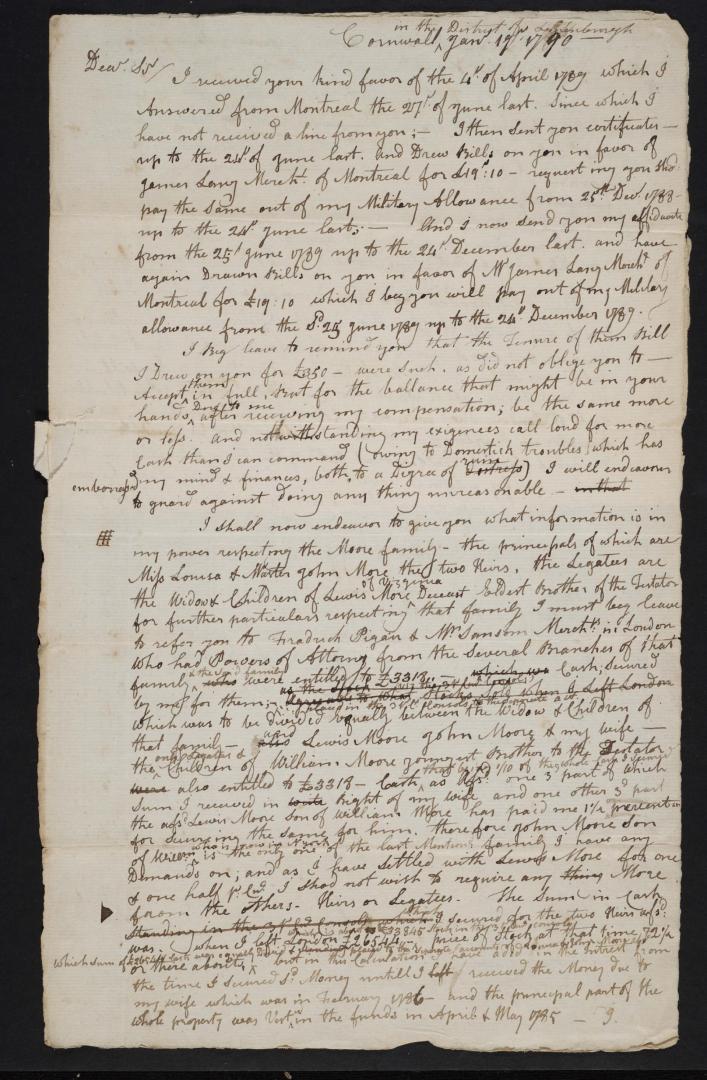 in the District of Lunenburgh
Cornwall Jany. 19t. 1790
Dear Sr/
I received your kind favor of the 4t. of April 1789 which I
Answered from Montreal the 27t. of June last. Since which I
have not received a line from you; — I then sent you certificates —
up to the 24t. of June last. and Drew Bills on you in favor of
James Lang Mercht. of Montreal for £19:10 — request.g you
pay the same out of my Military Allowance from 25th Decr. 1788 —
up to the 24t. June last; — And I now send you my affidavits
from the 25t June 1789 up to the 24t. December last. and have
again Drawn Bills on you in favor of Mr James Lang Mercht. of
Montreal for £19:10 which I beg you will pay out of my Military
allowance from the Sd. 25 June 1789 up to the 24t. December 1789.
I Beg leave to remind you that the Tenure of them Bill
I Drew on you for £350 — were such, as did not oblige you to —
Accept them in full, But for the ballance that might be in your
hands, Due to me after receiving my compensation; be the same more
or less. and notwithstanding my exigences call loud for more
Cash than I can command (owing to Domestick troubles, which has
embarrassd my mind & finances, both, to a Degree of ruin Distress) I will endeavour
to guard against doing any thing unreasonable — in that
I shall now endeavor to give you what information is in
my power respecting the Moore family — the principals of which are
Miss Louisa & Master John More the two Heirs, the Legatees are
the Widow & Children of Lewis More of Virginia Deceast Eldest Brother of the Testator
for further particulars respecting that family I must beg leave
to refer you to Fradrick Pigau & Mr. Sansom Merchts. in London
who had Powers of Attorny from the Several Branches of that
family & the Sd. family who were entitled to £3318 — which was Cash, Secured
by me for them; —
which was to be divided equally between the Widow & Children of
that family — and also Lewis Moore John Moore & my wife —
the only Legatees & Children of William Moore youngest Brother to the Testator
were also entitled to £3318 — Cash, as afsd. one 3d part of which
Sum I received in Right of my wife and one other 3d part
the afsd Lewis Moore Son of William More has paid me 1½ percent
for Securing the same for him. therefore John Moore Son
of Willm is the only one of the last Mentiond family I have any
Demands on; and as I have settled with Lewis More for one
& one half pr. Cnt. I shod not wish to require any thing More
from the others — Heirs or Legatees. The Sum in Cash
standing in the 3 pr Ct consols which I secured for the two Heirs afsd.
was. when I left London £26544 price of Stock at that time 72¼
or there abouts; but in this Calculation have added in the Intrest from
the time I Secured sd. Money untill I left received the Money due to
my wife which was in February 1786 — and the principal part of the
whole property was Vest.g in the funds in April & May 1785 —